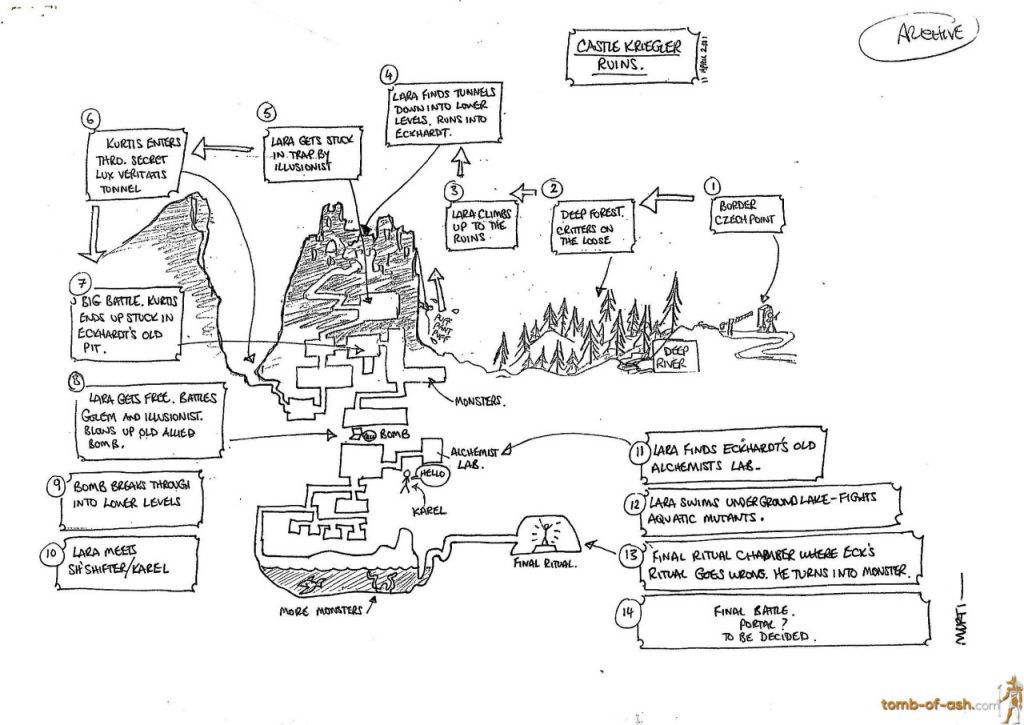 ARCHIVE
CASTLE KRIEGLER
RUINS.
11 APRIL 2001
1
BORDER
CZECHPOINT
2
DEEP FOREST.
CRITTERS ON
THE LOOSE
3
LARA CLIMBS
UP TO THE
RUINS
4
LARA FINDS TUNNELS
DOWN INTO LOWER
LEVELS, RUNS INTO
ECKHARDT.
5
LARA GETS STUCK
IN TRAP BY
ILLUSIONIST
6
KURTIS ENTERS
THRO. SECRET
LUX VERITATIS
TUNNEL
7
BIG BATTLE. KURTIS
ENDS UP STUCK IN
ECKHARDT'S OLD
PIT.
8
LARA GETS FREE. BATTLES
GOLEM AND ILLUSIONIST.
BLOWS UP OLD ALLIED
BOMB.
9
BOMB BREAKS THROUGH
INTO LOWER LEVELS
10
LARA MEETS
SH'SHIFTER/KAREL
PUFF
PUFF
PUFF
DEEP
RIVER
MONSTERS.
BOMB
ALCHEMIST
LAB.
HELLO
KAREL
MORE MONSTERS
FINAL RITUAL.
11
LARA FINDS ECKHARDT'S OLD
ALCHEMISTS LAB-
12
LARA SWIMS UNDERGROUND LAKE-FIGHTS
AQUATIC MUTANTS.
13
FINAL RITUAL CHAMBER WHERE ECK'S
RITUAL GOES WRONG. HE TURNS INTO MONSTER.
14
FINAL BATTLE.
PORTAL?
TO BE DECIDED.
MURTI
tomb-of-ash.com